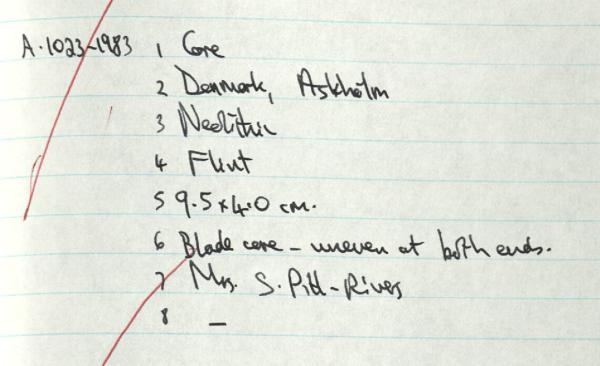 A.1023-1983 1 Core
2 Denmark, Askholm
3 Neolithic
4 Flint
5 9.5 x 4.0 cm.
6 Blade core - uneven at both ends.
7 Mrs. S. Pitt-Rivers
8 -